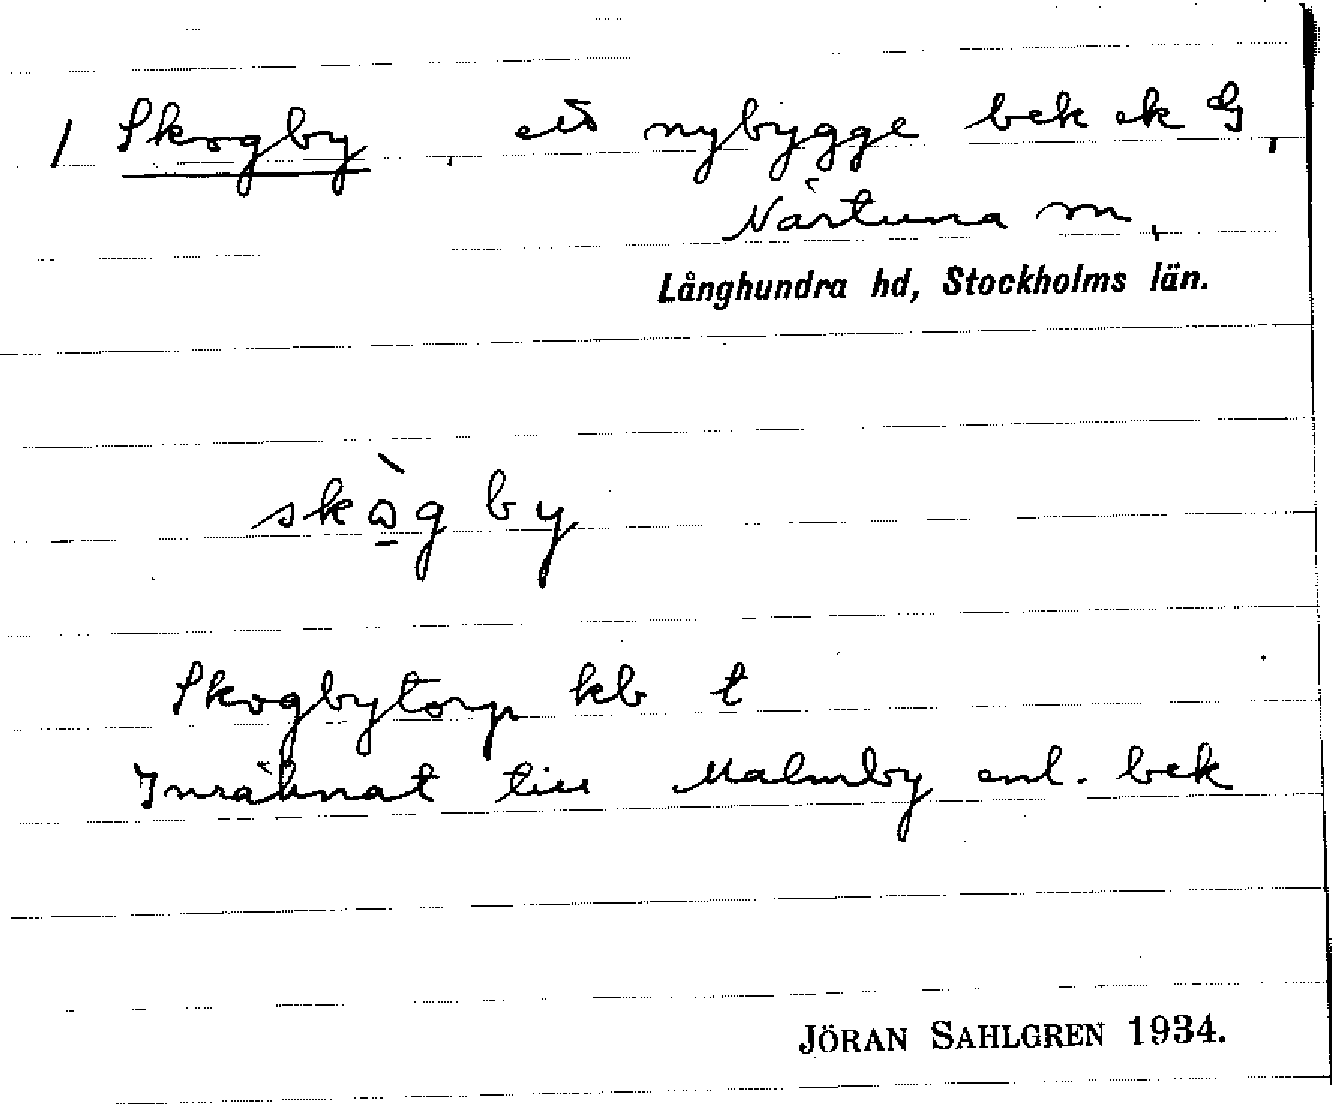 1 Skogby, ett nybygge bek ek G,
Närtuna sn,
Långhundra hd, Stockholms län.
skò̱gby
Skogbytorp kb t
Inräknat till Malmby enl. bek
JÖRAN SAHLGREN 1934.